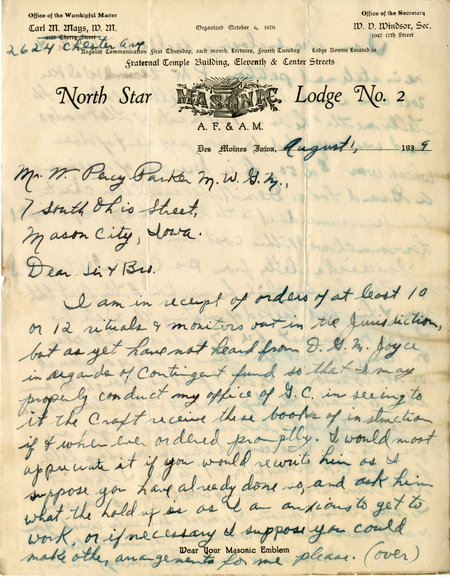 Office of the Worshipful Master
Office of the Secretary
Carl M. Mays, W. M.
Organized October 4, 1870
W. D. Windsor, Sec.
1047 17th Street
2624 Chester Ave.
Regular Communication First Thursday, each month. Lectures, Fourth Tuesday Lodge Rooms Located in
Fraternal Temple Building, Eleventh & Center Streets
North Star MASONIC Lodge No. 2
A. F. & A. M.
Des Moines Iowa, August 1, 1939
Mr. W. Percy Parker M. W. G. M.,
7 South Ohio Street,
Mason City, Iowa.
Dear Sir & Bro.
I am in receipt of orders of at least 10
or 12 rituals & monitors out in the Jurisdiction,
but as yet have not heard from D. G. M. Joyce
in regards of Contingent fund so that I may
properly conduct my office of G. C. in seeing to
it the Craft receive these books of instruction
if & when ever ordered promptly. I would most
appreciate it if you would rewrite him as I
suppose you have already done so, and ask him
what the hold up is as I am anxious to get to
work, or if necessary I suppose you could
make other arrangements for me please. (over)
Wear Your Masonic Emblem